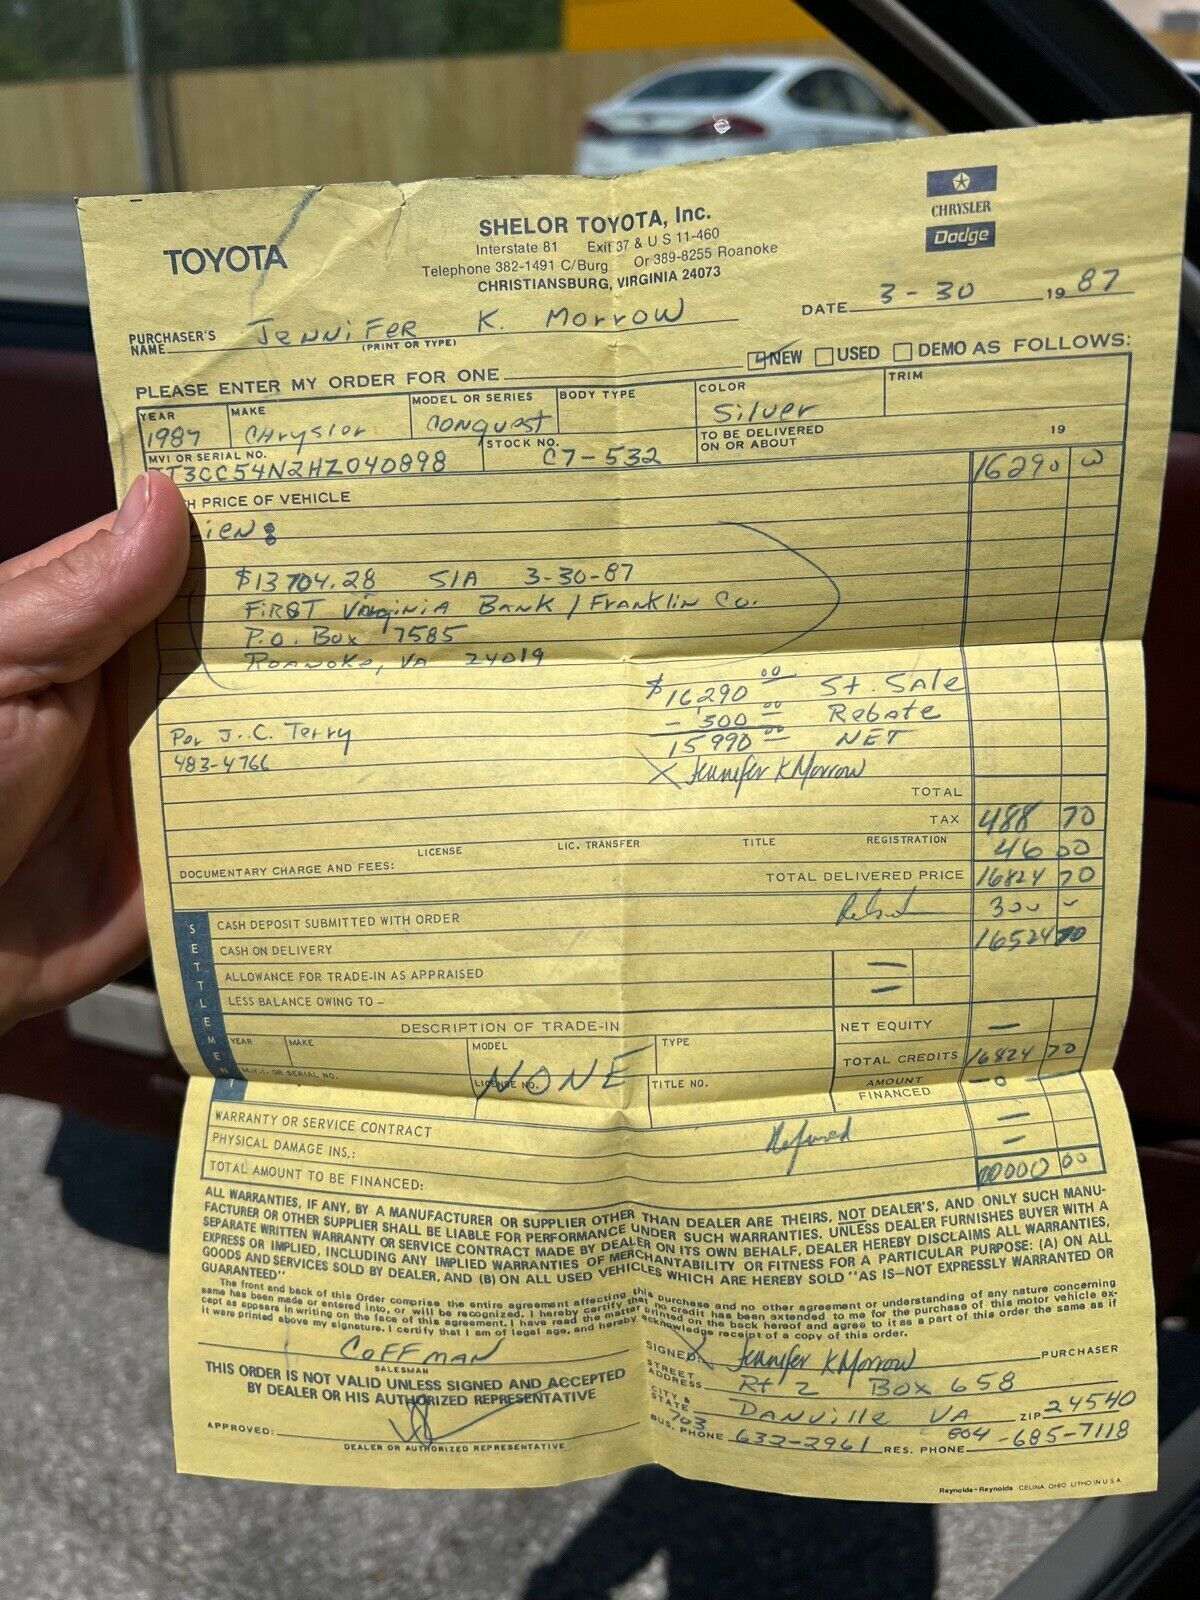 CHRYSLER
Dodge
TOYOTA
SHELOR TOYOTA, Inc.
Interstate 81 Exit 37 & U S 11-460
Telephone 382-1491 C/Burg Or 389-8255 Roanoke
CHRISTIANSBURG, VIRGINIA 24073
DATE 3-30 19 87
PURCHASER'S NAME Jennifer K. Morrow
(PRINT OR TYPE)
PLEASE ENTER MY ORDER FOR ONE NEW USED DEMO AS FOLLOWS:
YEAR MAKE MODEL OR SERIES BODY TYPE COLOR TRIM
1987 CHryslor Conquest Silver
MVI OR SERIAL NO. STOCK NO. TO BE DELIVERED ON OR ABOUT 19
JT3CC54N2HZ040898 C7-532
H PRICE OF VEHICLE 16290 00
ien:
$13704.28 S/A 3-30-87
First Virginia Bank / Franklin Co.
P.O. Box 7585
Roanoke, VA 24019
$16290 00 St. Sale
- 300 00 Rebate
15990 00 NET
Per J. C. Terry
483-4766
X Jennifer K Morrow
TOTAL
TAX 488 70
LICENSE LIC. TRANSFER TITLE REGISTRATION 46 00
DOCUMENTARY CHARGE AND FEES:
TOTAL DELIVERED PRICE 16824 70
SETTLEMENT
CASH DEPOSIT SUBMITTED WITH ORDER Rebate 300 -
CASH ON DELIVERY 16524 70
ALLOWANCE FOR TRADE-IN AS APPRAISED —
LESS BALANCE OWING TO – —
DESCRIPTION OF TRADE-IN NET EQUITY —
YEAR MAKE MODEL TYPE TOTAL CREDITS 16824 70
M.V.I. OR SERIAL NO. LICENSE NO. TITLE NO. AMOUNT FINANCED -0-
NONE
WARRANTY OR SERVICE CONTRACT —
PHYSICAL DAMAGE INS.: Refused —
TOTAL AMOUNT TO BE FINANCED: 00000 00
ALL WARRANTIES, IF ANY, BY A MANUFACTURER OR SUPPLIER OTHER THAN DEALER ARE THEIRS, NOT DEALER'S, AND ONLY SUCH MANU-
FACTURER OR OTHER SUPPLIER SHALL BE LIABLE FOR PERFORMANCE UNDER SUCH WARRANTIES. UNLESS DEALER FURNISHES BUYER WITH A
SEPARATE WRITTEN WARRANTY OR SERVICE CONTRACT MADE BY DEALER ON ITS OWN BEHALF, DEALER HEREBY DISCLAIMS ALL WARRANTIES,
EXPRESS OR IMPLIED, INCLUDING ANY IMPLIED WARRANTIES OF MERCHANTABILITY OR FITNESS FOR A PARTICULAR PURPOSE: (A) ON ALL
GOODS AND SERVICES SOLD BY DEALER, AND (B) ON ALL USED VEHICLES WHICH ARE HEREBY SOLD "AS IS—NOT EXPRESSLY WARRANTED OR
GUARANTEED"
The front and back of this Order comprise the entire agreement affecting this purchase and no other agreement or understanding of any nature concerning
same has been made or entered into, or will be recognized. I hereby certify that no credit has been extended to me for the purchase of this motor vehicle ex-
cept as appears in writing on the face of this agreement. I have read the matter printed on the back hereof and agree to it as a part of this order the same as if
it were printed above my signature. I certify that I am of legal age, and hereby acknowledge receipt of a copy of this order.
COFFMAN
SALESMAN
THIS ORDER IS NOT VALID UNLESS SIGNED AND ACCEPTED
BY DEALER OR HIS AUTHORIZED REPRESENTATIVE
APPROVED:
DEALER OR AUTHORIZED REPRESENTATIVE
SIGNED X Jennifer K Morrow PURCHASER
STREET ADDRESS Rt 2 Box 658
CITY & STATE Danville VA ZIP 24540
BUS. PHONE 703 632-2961 RES. PHONE 804-685-7118
Reynolds+Reynolds CELINA OHIO LITHO IN U S A